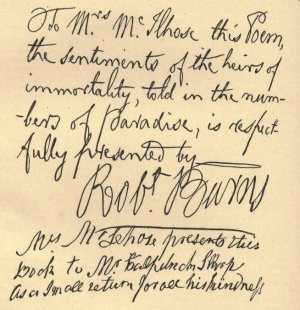 To Mrs Mc.Ilhose this Poem,
the sentiments of the heirs of
immortality, told in the num-
bers of Paradise, is respect-
fully presented by
Robt. Burns
Mrs McLehose presents this
Book to Mr
as a Small return for all his kindness